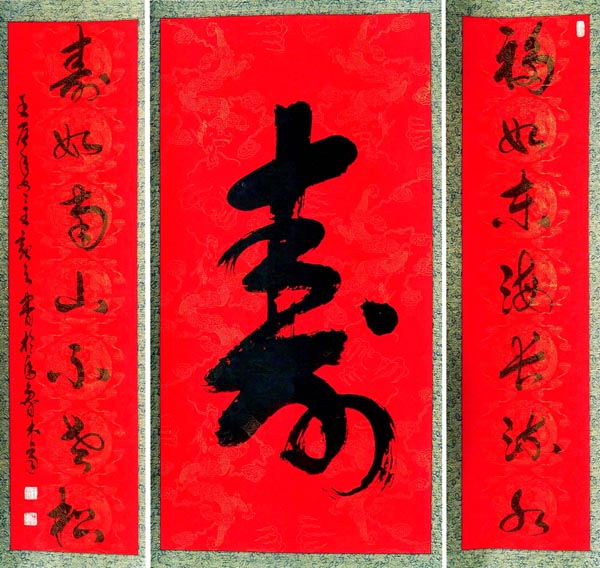 福如东海长流水
寿
寿如南山不老松